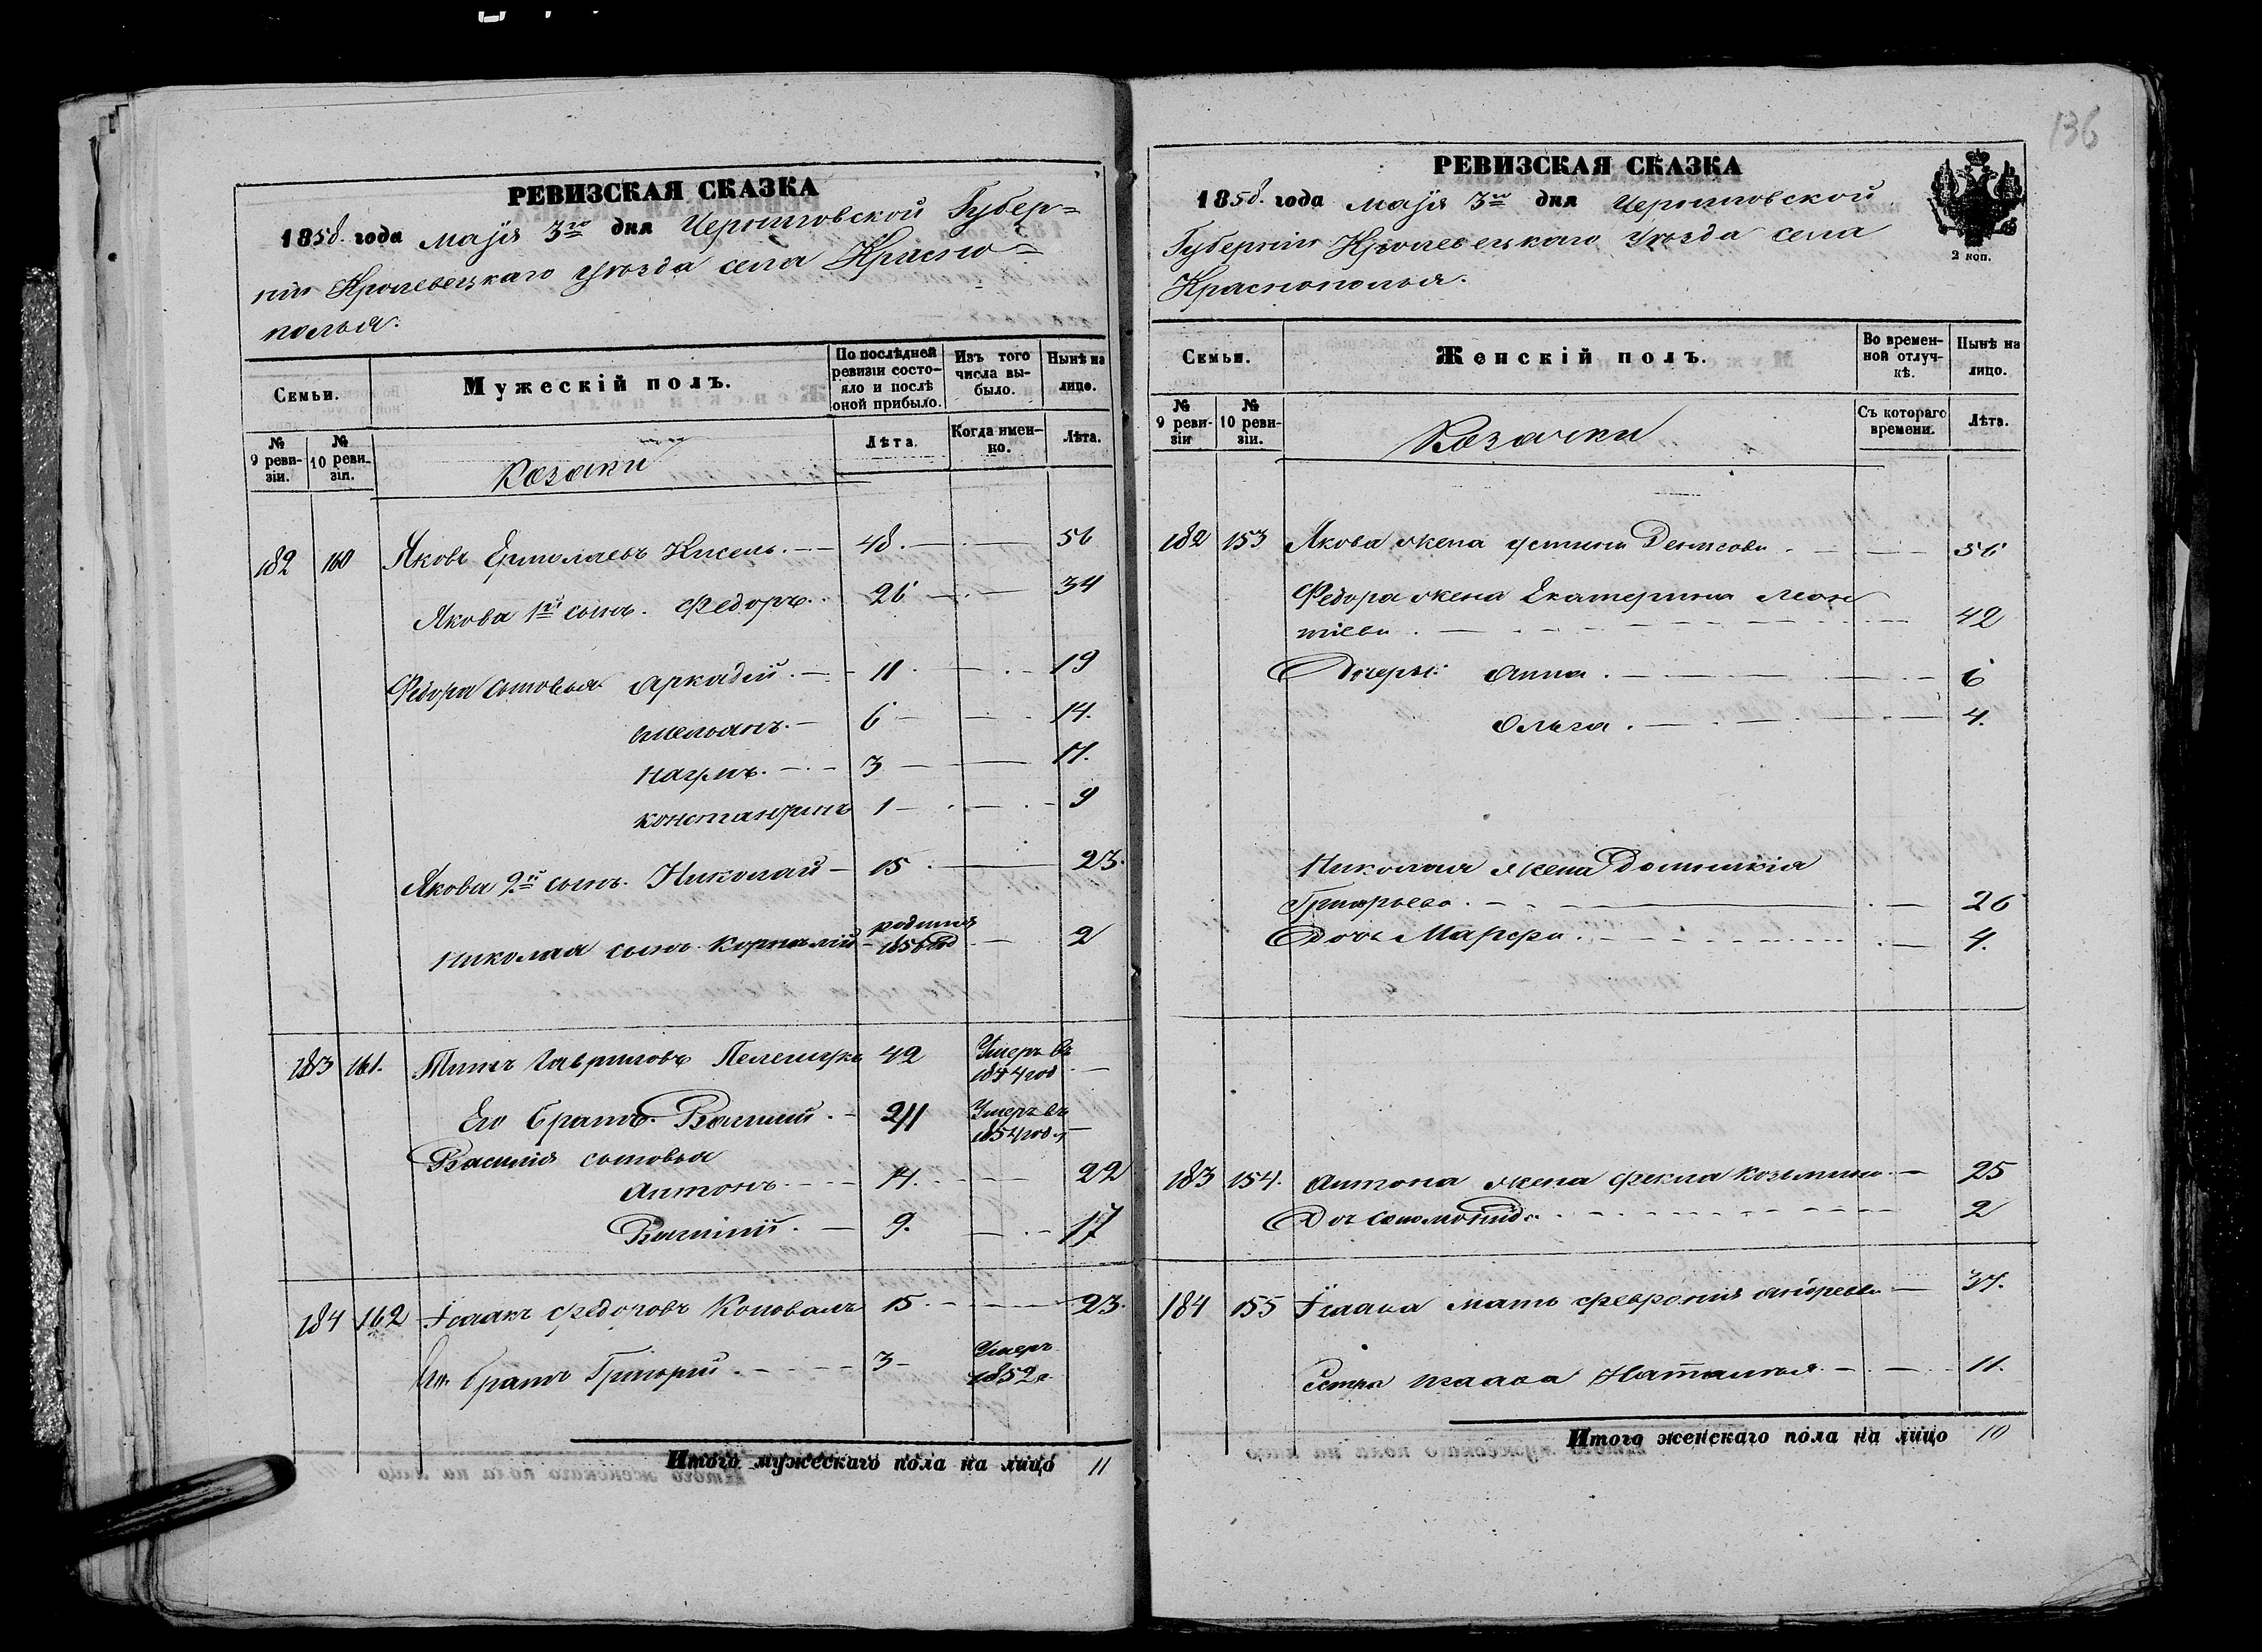 136
РЕВИЗСКАЯ СКАЗКА
1858. года маія 3го дня Черниговской Губер=
ніи Кролевецкаго уѣзда села Красно=
полья.
Семьи.
Мужескій полъ.
По послѣдней ревизіи состояло и послѣ оной прибыло.
Изъ того числа выбыло.
Нынѣ на лицо.
№ 9 ревизіи.
№ 10 ревизіи.
Казаки
Лѣта.
Когда именно.
Лѣта.
182 160 Яковъ Ермолаевъ Кисель. 48. 56
Якова 1й сынъ. Федоръ. 26 34
Федора сыновья Аркадій. 11. 19
Емельянъ. 6 14.
Наумъ. 3 11.
Константинъ 1 9
Якова 2й сынъ. Николай 15 23.
родился
Николая сынъ Корнилій 1856 год 2
183 161. Гавриловъ 42 Умеръ въ
1844 год
Его братъ Василій. 211 Умеръ въ
1854 год.
Василія сыновья
Антонъ 14. 22
Василій. 9. 17
184 162 Ісаакъ Федоровъ Коновалъ 15. 23.
Его братъ Григорій. 3 Умеръ
1852 г.
Итого мужескаго пола на лицо 11
РЕВИЗСКАЯ СКАЗКА
1858. года маія 3го дня Черниговской
Губерніи Кролевецкаго уѣзда села
Краснополья.
2 коп.
Семьи.
Женскій полъ.
Во временной отлучкѣ.
Нынѣ на лицо.
№ 9 ревизіи
№ 10 ревизіи.
Казачки
Съ котораго времени.
Лѣта.
182 153 Якова жена Устинья Денисова. 56
Федора жена Екатерина Леон
тіева. 42
Дочери: Анна. 6
Ольга. 4.
Николая жена Домникія
Григорьева. 26
Дочь Марфа. 4.
183 154. Антона жена Фекла Козьмина 25
Дочь Соломонида. 2
184 155 Ісаака мать Февронія Андреева 37.
Сестра Ісаака Наталья. 11.
Итого женскаго пола на лицо 10